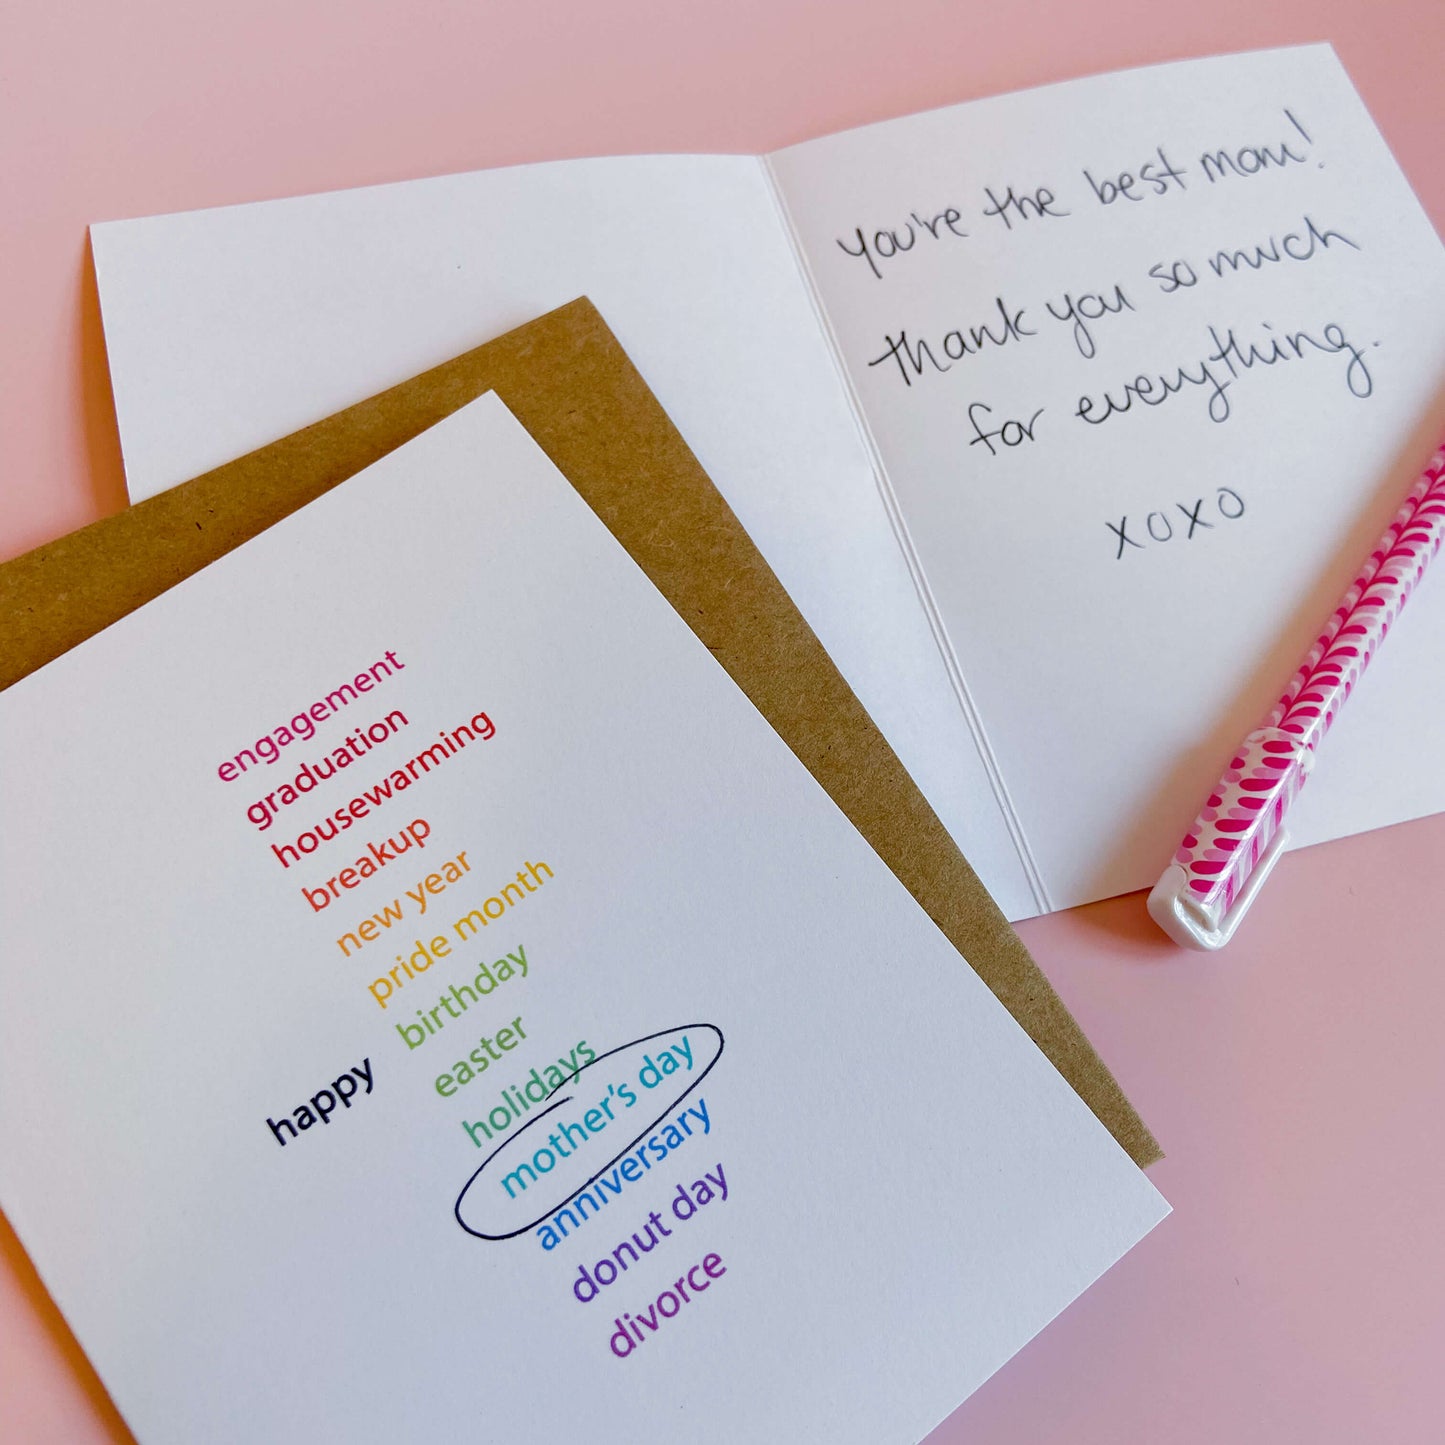 you're the best mom!
thank you so much
for everything.
xoxo
engagement
graduation
housewarming
breakup
new year
pride month
birthday
easter
holidays
happy mother's day
anniversary
donut day
divorce